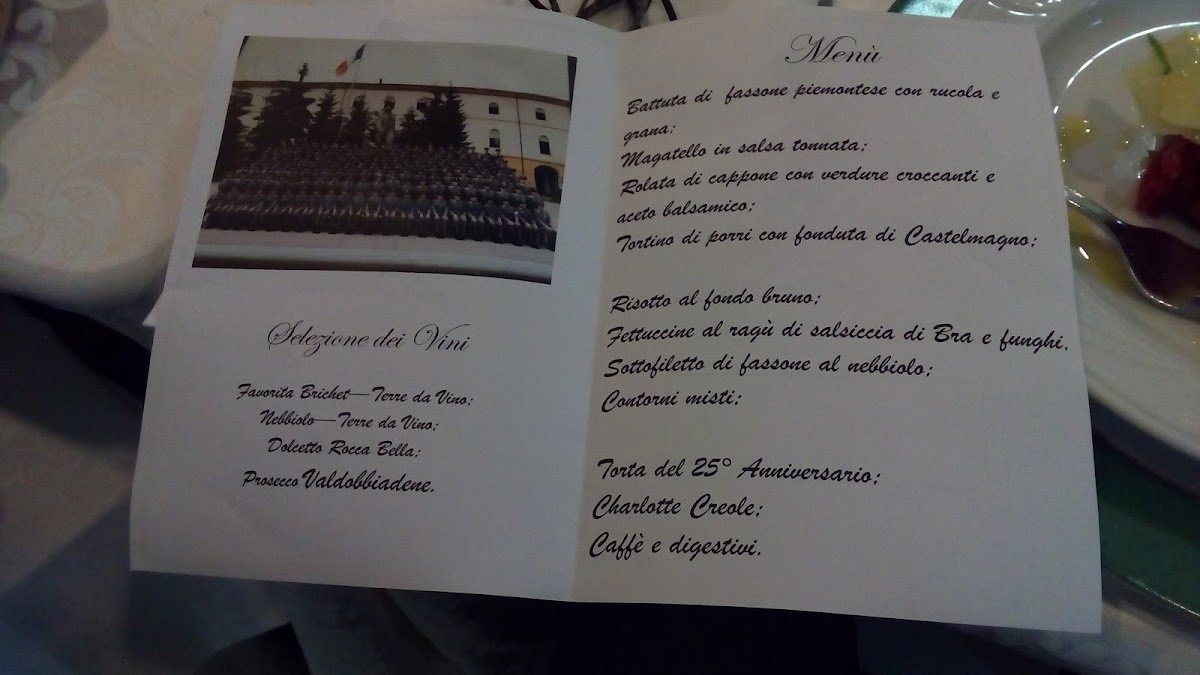 Selezione dei Vini
Favorita Brichet—Terre da Vino;
Nebbiolo—Terre da Vino;
Dolcetto Rocca Bella;
Prosecco Valdobbiadene.
Menù
Battuta di fassone piemontese con rucola e
grana;
Magatello in salsa tonnata;
Rolata di cappone con verdure croccanti e
aceto balsamico;
Tortino di porri con fonduta di Castelmagno;
Risotto al fondo bruno;
Fettuccine al ragù di salsiccia di Bra e funghi.
Sottofiletto di fassone al nebbiolo;
Contorni misti;
Torta del 25° Anniversario;
Charlotte Creole;
Caffè e digestivi.